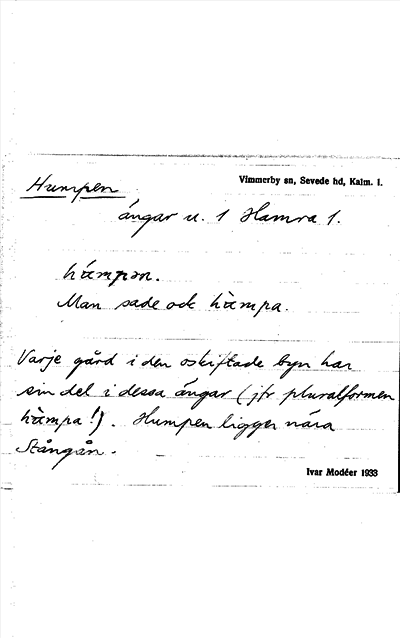 Humpen
Vimmerby sn, Sevede hd, Kalm. l.
ängar u. 1 Hamra 1.
hämpən.
Man sade ock hämpa.
Varje gård i den oskiftade byn har
sin del i dessa ängar (jfr pluralformen
hämpa!). Humpen ligger nära
Stångån.
Ivar Modéer 1933